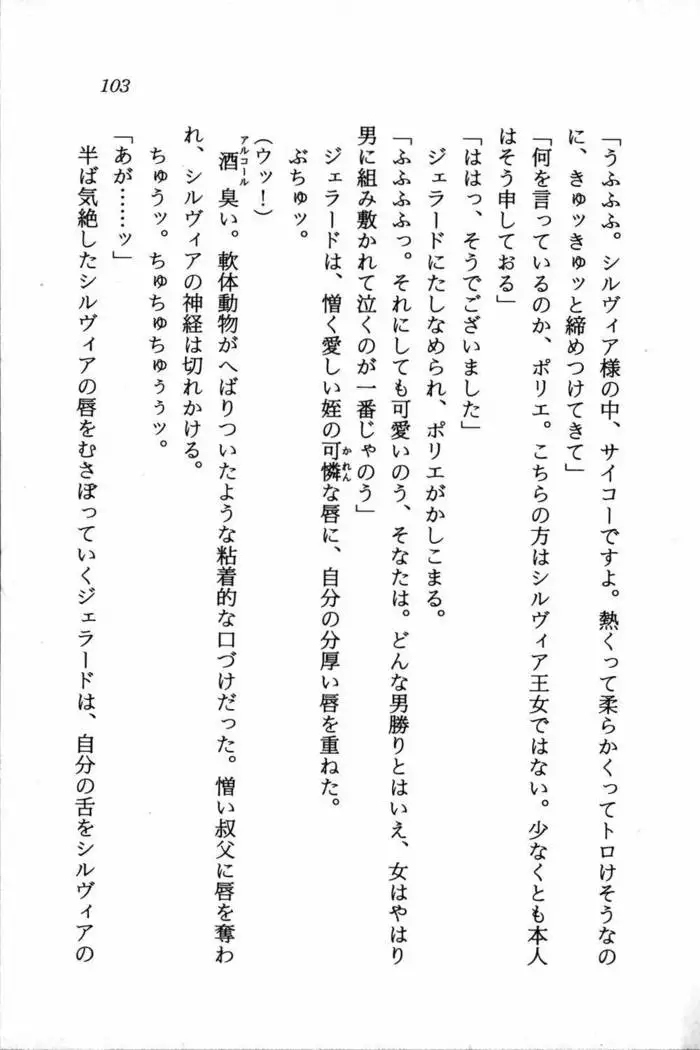 103
「うふふふ。シルヴィア様の中、サイコーですよ。熱くって柔らかくってトロけそうなの
に、きゅッきゅッと締めつけてきて」
「何を言っているのか、ポリエ。こちらの方はシルヴィア王女ではない。少なくとも本人
はそう申しておる」
「ははっ、そうでございました」
ジェラードにたしなめられ、ポリエがかしこまる。
「ふふふふっ。それにしても可愛いのう、そなたは。どんな男勝りとはいえ、女はやはり
男に組み敷かれて泣くのが一番じゃのう」
ジェラードは、憎く愛しい姪の可憐な唇に、自分の分厚い唇を重ねた。
かれん
ぶちゅッ。
(ウッ！)
酒臭い。軟体動物がへばりついたような粘着的な口づけだった。憎い叔父に唇を奪わ
アルコール
れ、シルヴィアの神経は切れかける。
ちゅうッ。ちゅちゅちゅぅぅッ。
「あが……ッ」
半ば気絶したシルヴィアの唇をむさぼっていくジェラードは、自分の舌をシルヴィアの